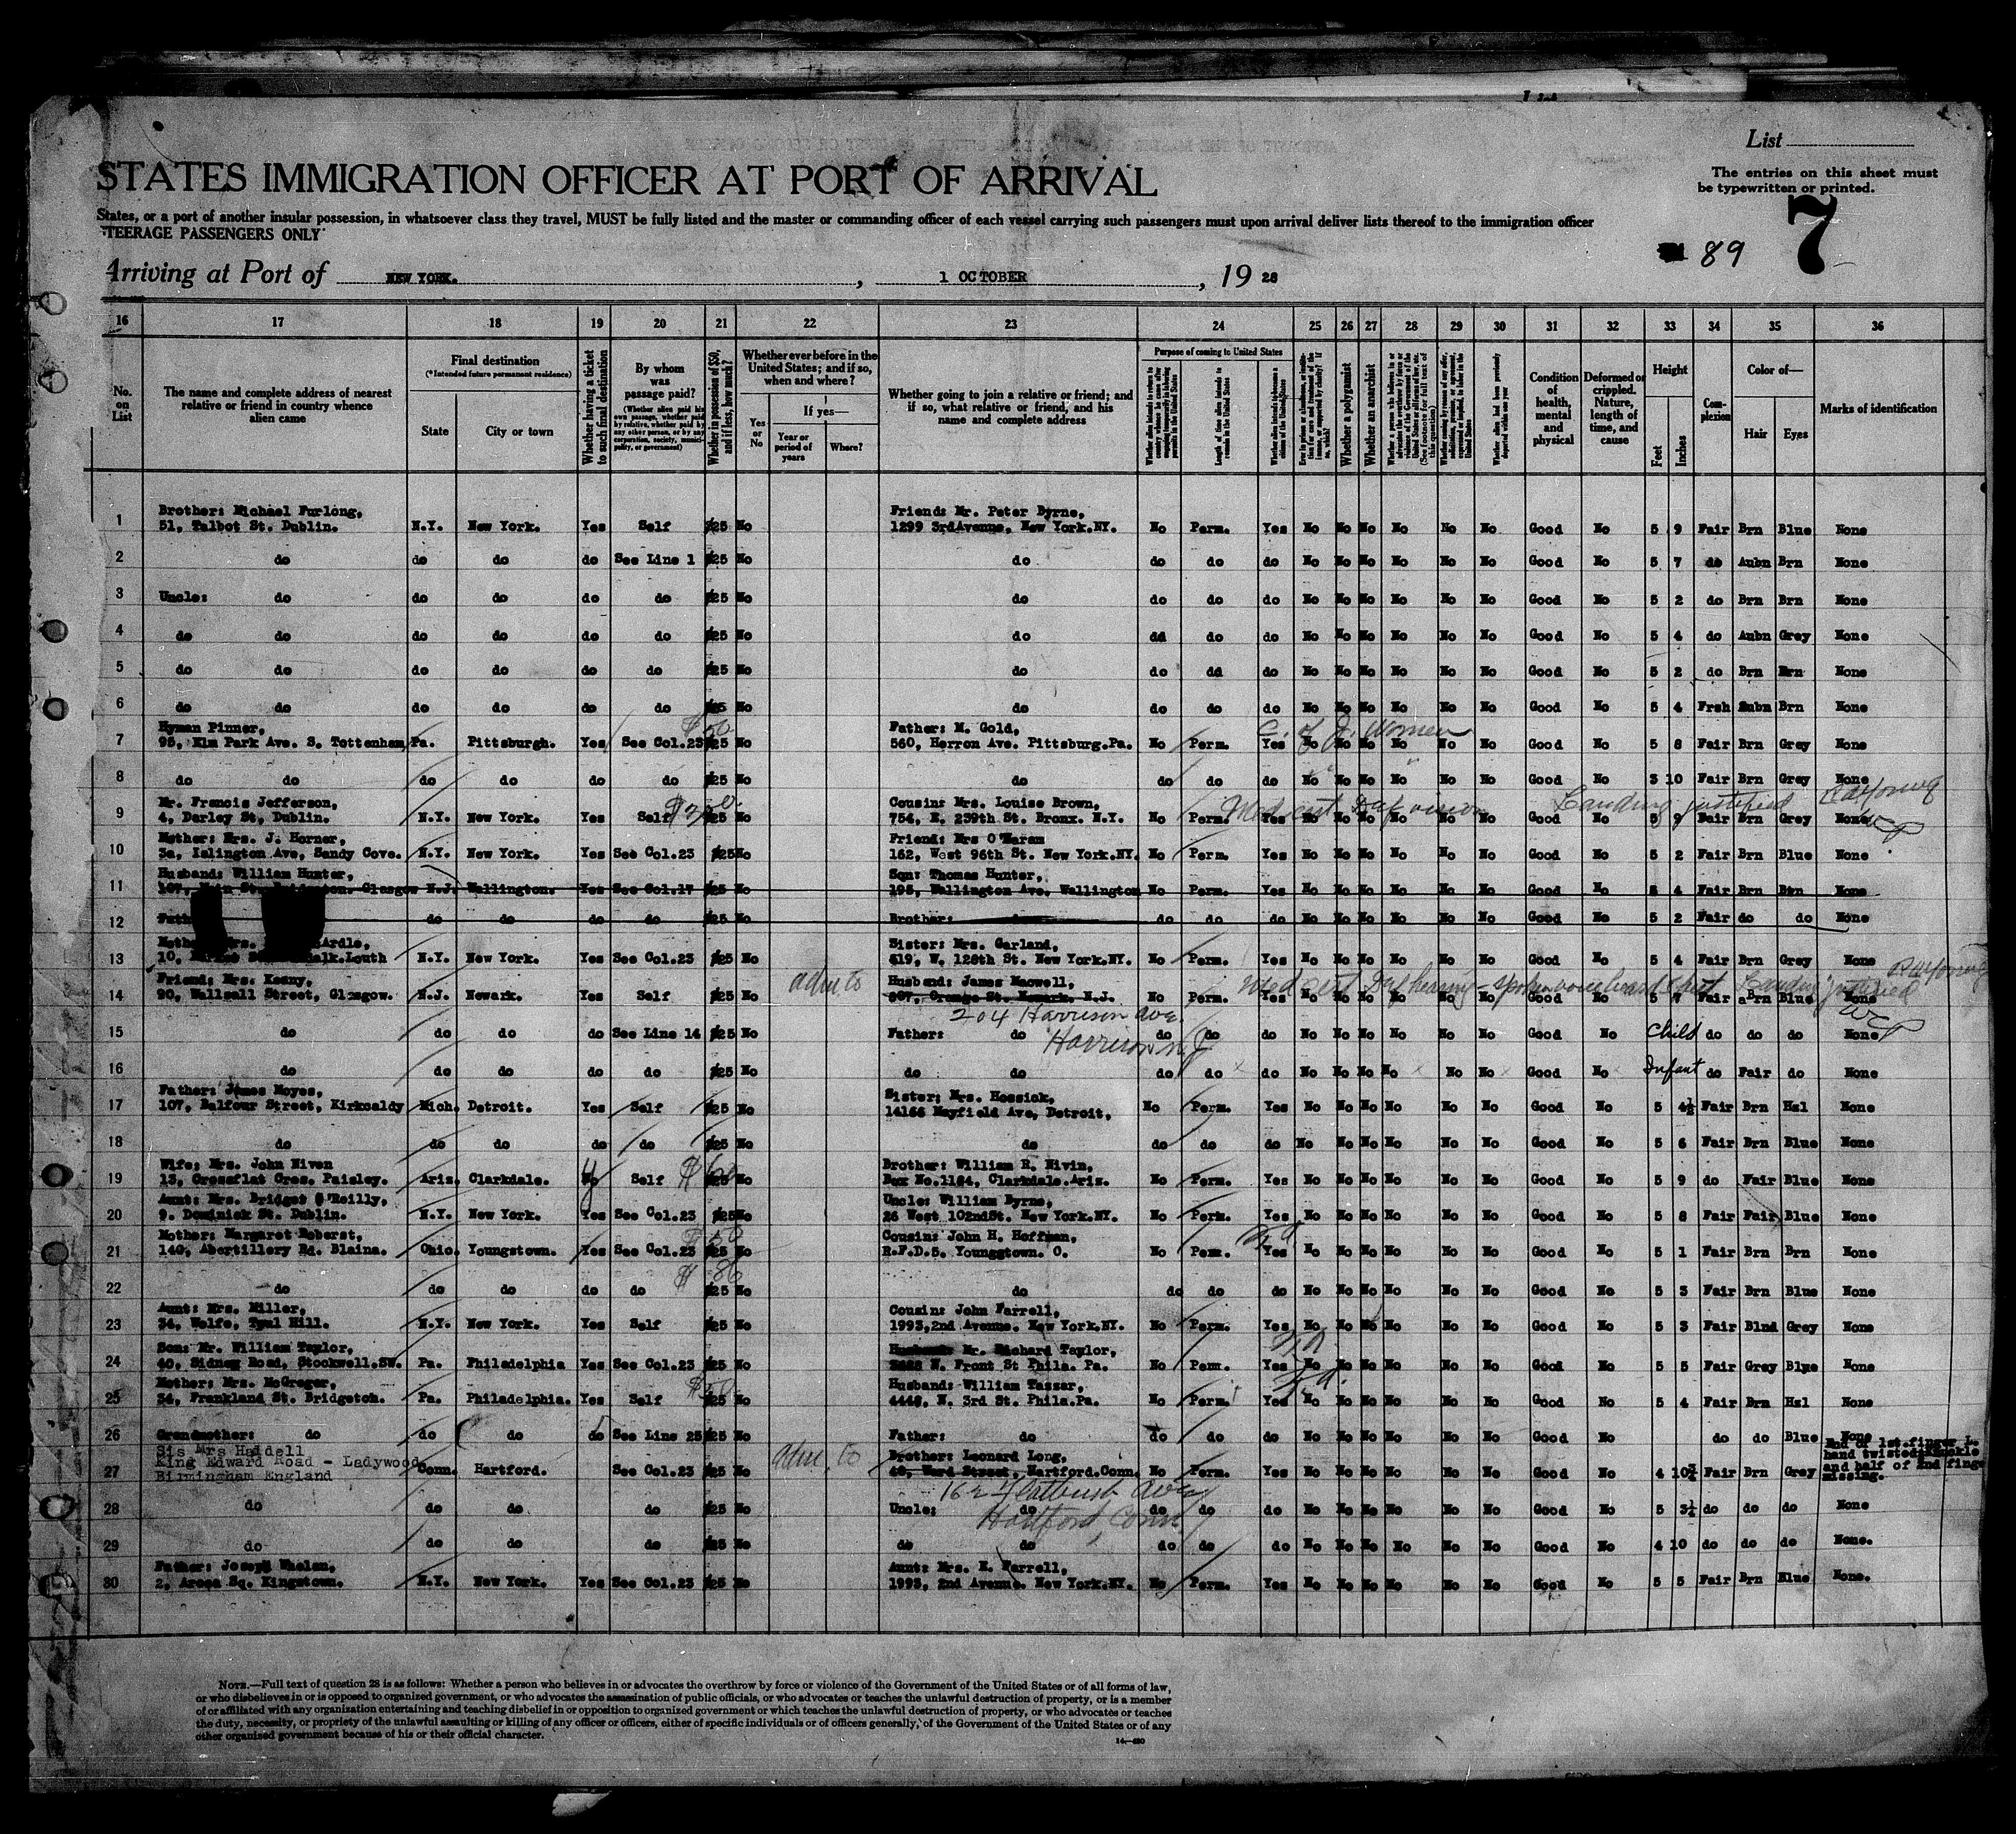 List
STATES IMMIGRATION OFFICER AT PORT OF ARRIVAL
The entries on this sheet must
be typewritten or printed.
States, or a port of another insular possession, in whatsoever class they travel, MUST be fully listed and the master or commanding officer of each vessel carrying such passengers must upon arrival deliver lists thereof to the immigration officer
TEERAGE PASSENGERS ONLY
89 7
Arriving at Port of NEW YORK. , 1 OCTOBER , 19 28
16 17 18 19 20 21 22 23 24 25 26 27 28 29 30 31 32 33 34 35 36
No. on List
The name and complete address of nearest relative or friend in country whence alien came
Final destination
(*Intended future permanent residence)
State
City or town
Whether having a ticket to such final destination
By whom was passage paid?
(Whether alien paid his own passage, whether paid by relative, whether paid by any other person, or by any corporation, society, municipality, or government)
Whether in possession of $50, and if less, how much?
Whether ever before in the United States; and if so, when and where?
Yes or No
If yes—
Year or period of years
Where?
Whether going to join a relative or friend; and if so, what relative or friend, and his name and complete address
Purpose of coming to United States
Length of time alien intends to remain in the United States
Whether a polygamist
Whether an anarchist
Condition of health, mental and physical
Deformed or crippled. Nature, length of time, and cause
Height
Feet
Inches
Complexion
Color of—
Hair
Eyes
Marks of identification
Brother: Michael Furlong, Friend: Mr. Peter Byrne,
1 51, Talbot St. Dublin. N.Y. New York. Yes Self $25 No 1299 3rdAvenue, New York.NY. No Perm. Yes No No No No No No Good No 5 9 Fair Brn Blue None
2 do do do do See Line 1 $25 No do do do do No No No No No No Good No 5 7 do Aubn Brn None
3 Uncle: do do do do do $25 No do do do do No No No No No No Good No 5 2 do Brn Brn None
4 do do do do do do $25 No do dd do do No No No No No No Good No 5 4 do Aubn Grey None
5 do do do do do do $25 No do do dd do No No No No No No Good No 5 2 do Brn Brn None
6 do do do do do do $25 No do do do do No No No No No No Good No 5 4 Frsh Aubn Brn None
Hyman Pinner, $50 Father: M. Gold, C. of J. Women
7 95, Elm Park Ave. S. Tottenham Pa. Pittsburgh. Yes See Col.23 $25 No 560, Herron Ave. Pittsburg.Pa. No Perm. Yes No No No No No No Good No 5 8 Fair Brn Grey None
8 do do do do do do $25 No do do do do No No No No No No Good No 3 10 Fair Brn Grey None
Mr. Francis Jefferson, Cousin: Mrs. Louise Brown, Landing justified
9 4, Darley St, Dublin. N.Y. New York. Yes Self $25 No 754, E. 239th St. Bronx. N.Y. No Perm. Yes No No No No No No Good No 5 9 Fair Brn Grey None
Mother: Mrs. J. Horner, Friend: Mrs O'Maram
10 3a, Islington Ave, Sandy Cove. N.Y. New York. Yes See Col.23 $25 No 162, West 96th St. New York.NY. No Perm. Yes No No No No No No Good No 5 2 Fair Brn Blue None
Husband: William Hunter, Son: Thomas Hunter,
11 107, Main St. Bridgeton. Glasgow N.J. Wallington. Yes See Col.17 $25 No 195, Wallington Ave. Wallington No Perm. Yes No No No No No No Good No 5 4 Fair Brn Brn None
12 do do do do $25 No Brother: do do do do No No No No No No Good No 5 2 Fair do do None
Mrs. Ardle, Sister: Mrs. Garland,
13 10, Louth N.Y. New York. Yes See Col.23 $25 No 519, W. 128th St. New York.NY. No Perm. Yes No No No No No No Good No 5 4 Fair Brn Grey None
Friend: Mrs. Keany, adm to Husband: James Maxwell, Med cert Def hearing - spoken voice heard 2 feet Landing justified
14 90, Wallsall Street, Glasgow. N.J. Newark. Yes Self $25 No Orange St. Newark. N.J. No Perm. Yes No No No No No No Good No 5 7 Fair Brn Blue None
204 Harrison Ave.
15 do do do do See Line 14 $25 No Father: do do do do No No No No No No Good No Child do do do None
Harrison N.J.
16 do do do do do $25 No do do do do do No No No No No No Good No Infant do Fair do None
Father: James Moyes, Sister: Mrs. Hossick,
17 107, Balfour Street, Kirkcaldy Mich. Detroit. Yes Self $25 No 14166 Mayfield Ave, Detroit, No Perm. Yes No No No No No No Good No 5 4½ Fair Brn Hzl None
18 do do do do do $25 No do do do do No No No No No No Good No 5 6 Fair Brn Blue None
Wife: Mrs. John Niven Brother: William R. Nivin,
19 13, Crossflat Cres. Paisley. Ariz. Clarkdale. Self $25 No Box No.1184, Clarkdale.Ariz. No Perm. Yes No No No No No No Good No 5 9 do Fair Blue None
Aunt: Mrs. Bridget O'Reilly, Uncle: William Byrne,
20 9. Dominick St. Dublin. N.Y. New York. Yes See Col.23 $25 No 26 West 102ndSt. New York.NY. No Perm. Yes No No No No No No Good No 5 8 Fair Fair Blue None
Mother: Margaret Roberst, $50 Cousin: John H. Hoffman,
21 140, Abertillery Rd. Blaina. Ohio. Youngstown. Yes See Col.23 $25 No R.F.D.5. Younggtown. O. No Perm. Yes No No No No No No Good No 5 1 Fair Brn Brn None
22 do do do do do $25 No do do do do No No No No No No Good No 5 3 Fair Brn Blue None
Aunt: Mrs. Miller, Cousin: John Farrell,
23 34, Wolfe, Tyul Hill. N.Y. New York. Yes Self $25 No 1993,2nd Avenue. New York.NY. No Perm. Yes No No No No No No Good No 5 3 Fair Blnd Grey None
Son: Mr. William Taylor, Husband: Mr. Richard Taylor,
24 40, Sidney Road, Stockwell.SW. Pa. Philadelphia Yes See Col.23 $25 No N. Front St Phila. Pa. No Perm. Yes No No No No No No Good No 5 5 Fair Grey Blye None
Mother: Mrs. McGregor, Husband: William Tassar,
25 34, Frankland St. Bridgeton. Pa. Philadelphia. Yes Self $25 No 4448, N. 3rd St. Phila.Pa. No Perm. Yes No No No No No No Good No 5 4 Fair Brn Hzl None
26 Grandmother: do do do do See Line 25 $25 No Father: do do do do No No No No No No Good No do do Blue None
Sis Mrs Haddell
King Edward Road - Ladywood adm to Brother: Leonard Long, End of 1st.finger L. hand twisted.Knuckle and half of 2nd finge missing.
27 Birmingham England Conn. Hartford. See Col.23 $25 No 40, Ward Street, Hartford.Conn. No Perm. Yes No No No No No No Good No 4 10¾ Fair Brn Grey
162 Flatbush Ave
28 do do do do $25 No Uncle: do do do do No No No No No No Good No 5 3½ do do do None
Hartford, Conn.
29 do do do do $25 No do do do do do No No No No No No Good No 4 10 do do do None.
Father: Joseph Whelan, Aunt: Mrs. E. Farrell,
30 2, Arosa Sq. Kingstown. N.Y. New York. Yes See Col.23 $25 No 1993, 2nd Avenue. New York.NY. No Perm. Yes No No No No No No Good No 5 5 Fair Brn Blue None.
NOTE.—Full text of question 28 is as follows: Whether a person who believes in or advocates the overthrow by force or violence of the Government of the United States or of all forms of law,
or who disbelieves in or is opposed to organized government, or who advocates the assassination of public officials, or who advocates or teaches the unlawful destruction of property, or is a member
of or affiliated with any organization entertaining and teaching disbelief in or opposition to organized government or which teaches the unlawful destruction of property, or who advocates or teaches
the duty, necessity, or propriety of the unlawful assaulting or killing of any officer or officers, either of specific individuals or of officers generally, of the Government of the United States or of any
other organized government because of his or their official character.
14—430